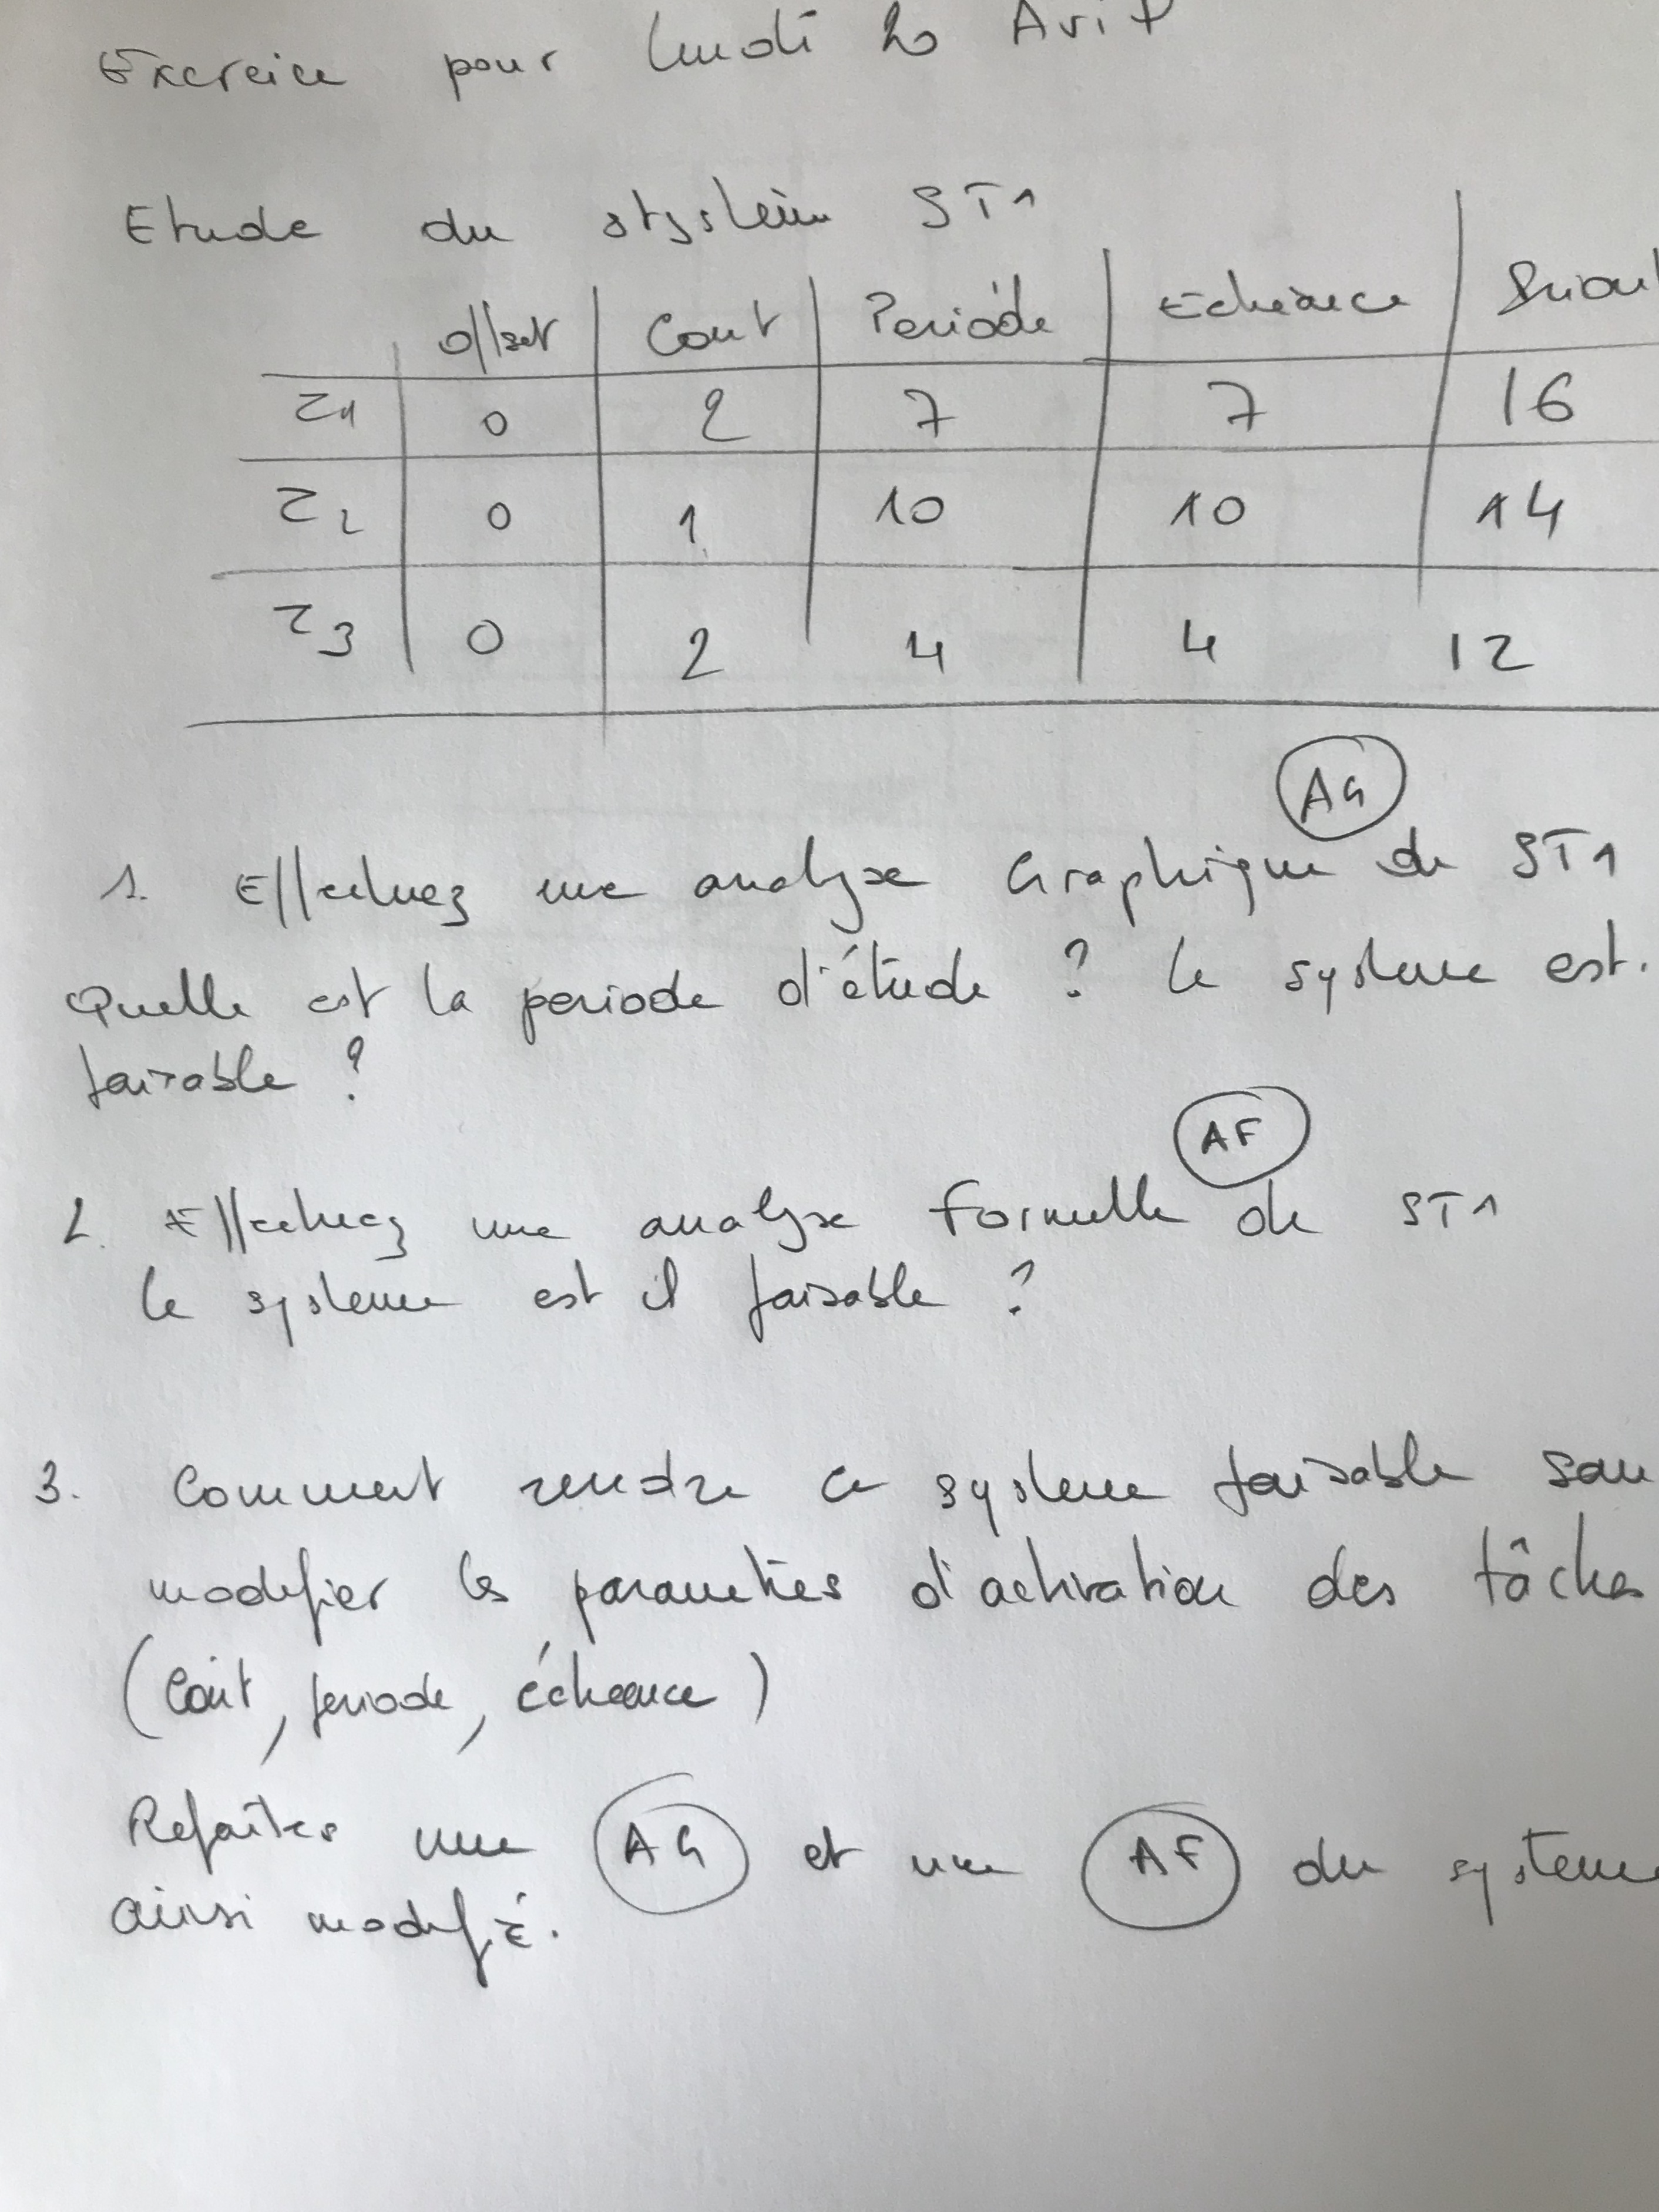 Exercice pour lundi 20 Avril
Etude du stystème ST1
offset Cout Periode Echéance Priorit
τ1 0 2 7 7 16
τ2 0 1 10 10 14
τ3 0 2 4 4 12
AG
1. Effectuez une analyse Graphique de ST1
Quelle est la periode d'étude ? Le systeme est.
faisable ?
AF
2. Effectuez une analyse formelle de ST1
le systeme est il faisable ?
3. Comment rendre ce systeme faisable san
modifier les parametres d'activation des tâches
(Coût, periode, échéance)
Refaites une AG et une AF du systeme
ainsi modifié.